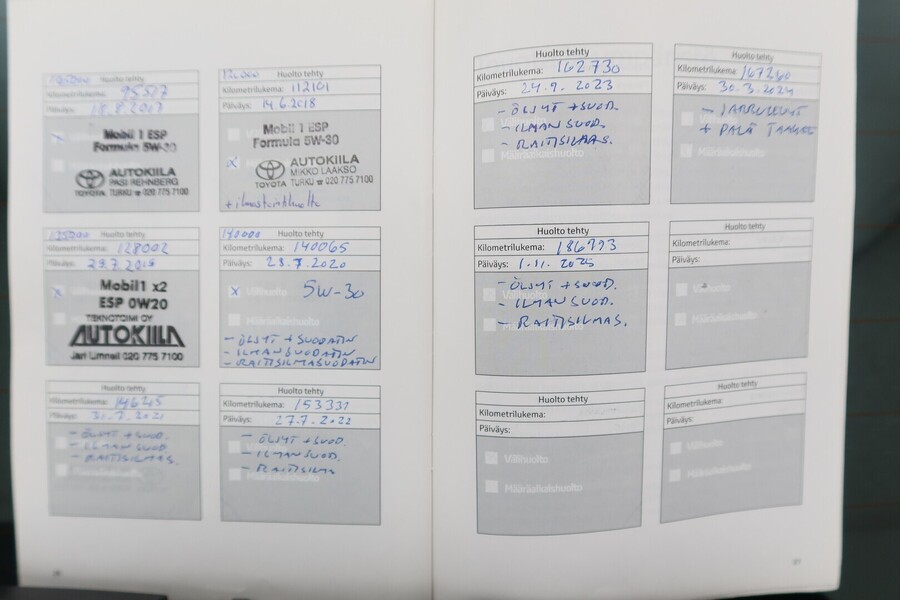 Huolto tehty
Kilometrilukema: 95527
Päiväys:
Mobil 1 ESP
Formula 5W-30
AUTOKIILA
PASI REHNBERG
TOYOTA TURKU ☎ 020 775 7100
Huolto tehty
Kilometrilukema: 112101
Päiväys: 14.6.2018
Mobil 1 ESP
Formula 5W-30
AUTOKIILA
MIKKO LAAKSO
TOYOTA TURKU ☎ 020 775 7100
+ ilmastointihuolto
Huolto tehty
Kilometrilukema: 128002
Päiväys: 29.7.2019
x
Mobil1 x2
ESP 0W20
TEKNOTOIMI OY
AUTOKIILA
Jari Limnell 020 775 7100
140000 Huolto tehty
Kilometrilukema: 140065
Päiväys: 23.7.2020
x Välihuolto 5W-30
Määräaikaishuolto
- ÖLJYT + SUODATIN
- ILMANSUODATIN
- RAITISILMASUODATIN
Huolto tehty
Kilometrilukema: 146215
Päiväys: 31.7.2021
- ÖLJYT + SUOD.
- ILMANSUOD.
- RAITISILMAS.
Huolto tehty
Kilometrilukema: 153331
Päiväys: 27.7.2022
- ÖLJYT + SUOD.
- ILMANSUOD.
- RAITISILMAS
Määräaikaishuolto
Huolto tehty
Kilometrilukema: 162730
Päiväys: 24.9.2023
- ÖLJYT + SUOD.
- ILMANSUOD.
- RAITISILMAS.
Määräaikaishuolto
Huolto tehty
Kilometrilukema: 167260
Päiväys: 30.3.2024
- JARRULEVYT
+ PALAT TAAKSE
Määräaikaishuolto
Huolto tehty
Kilometrilukema: 186793
Päiväys: 1.11.2025
- ÖLJYT + SUOD.
- ILMANSUOD.
- RAITISILMAS.
Huolto tehty
Kilometrilukema:
Päiväys:
Välihuolto
Määräaikaishuolto
Huolto tehty
Kilometrilukema:
Päiväys:
Välihuolto
Määräaikaishuolto
Huolto tehty
Kilometrilukema:
Päiväys:
Välihuolto
Määräaikaishuolto